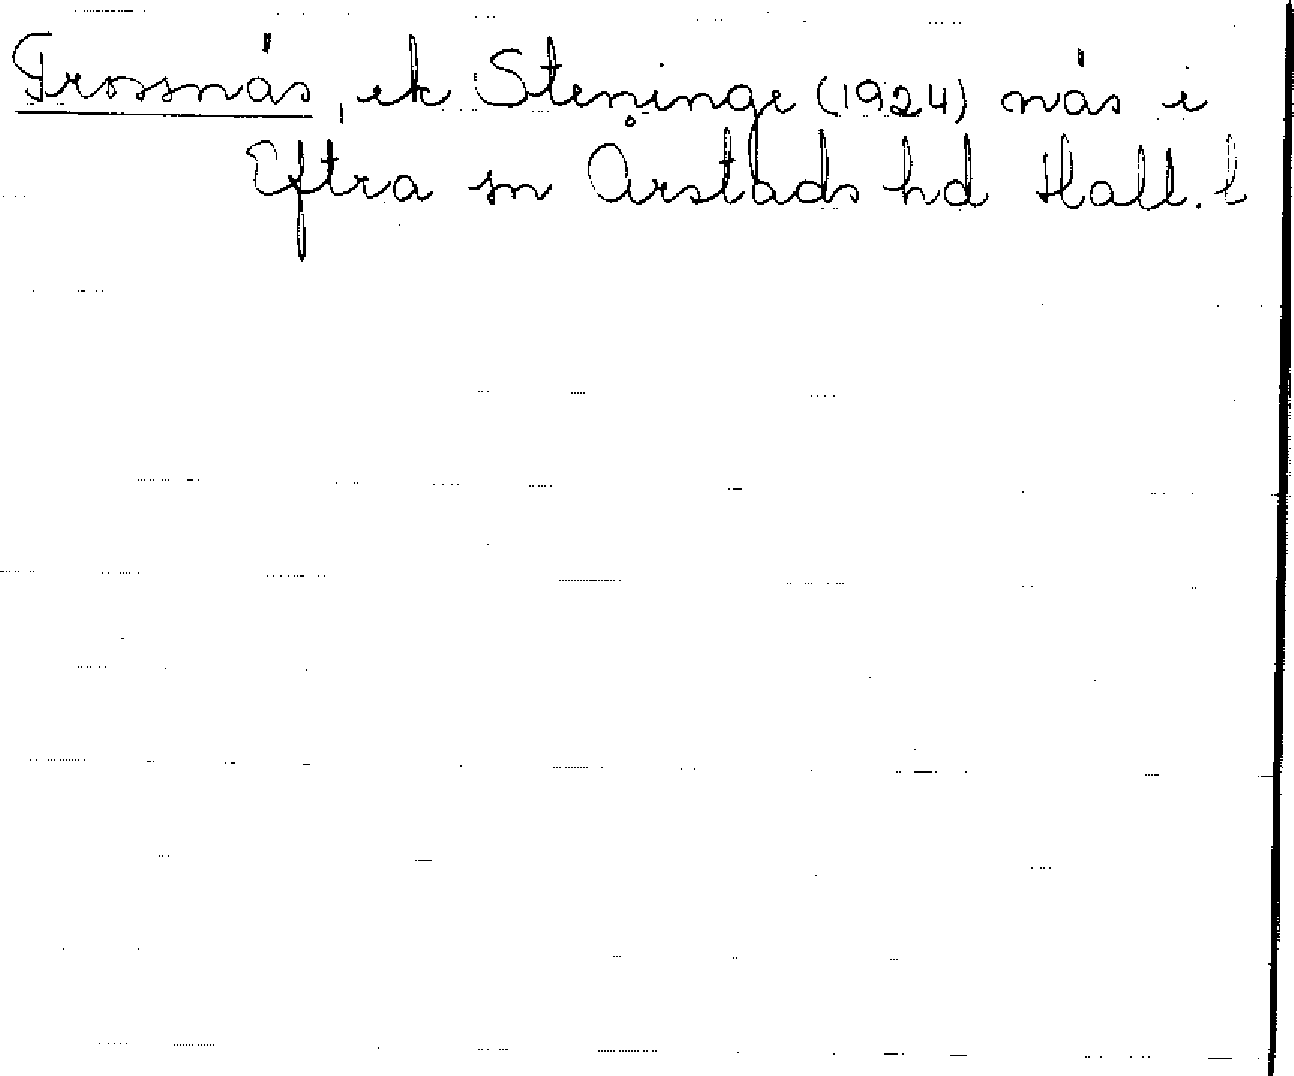 Trossnäs, ek Steninge (1924) näs i
Eftra sn Årstads hd Hall. l